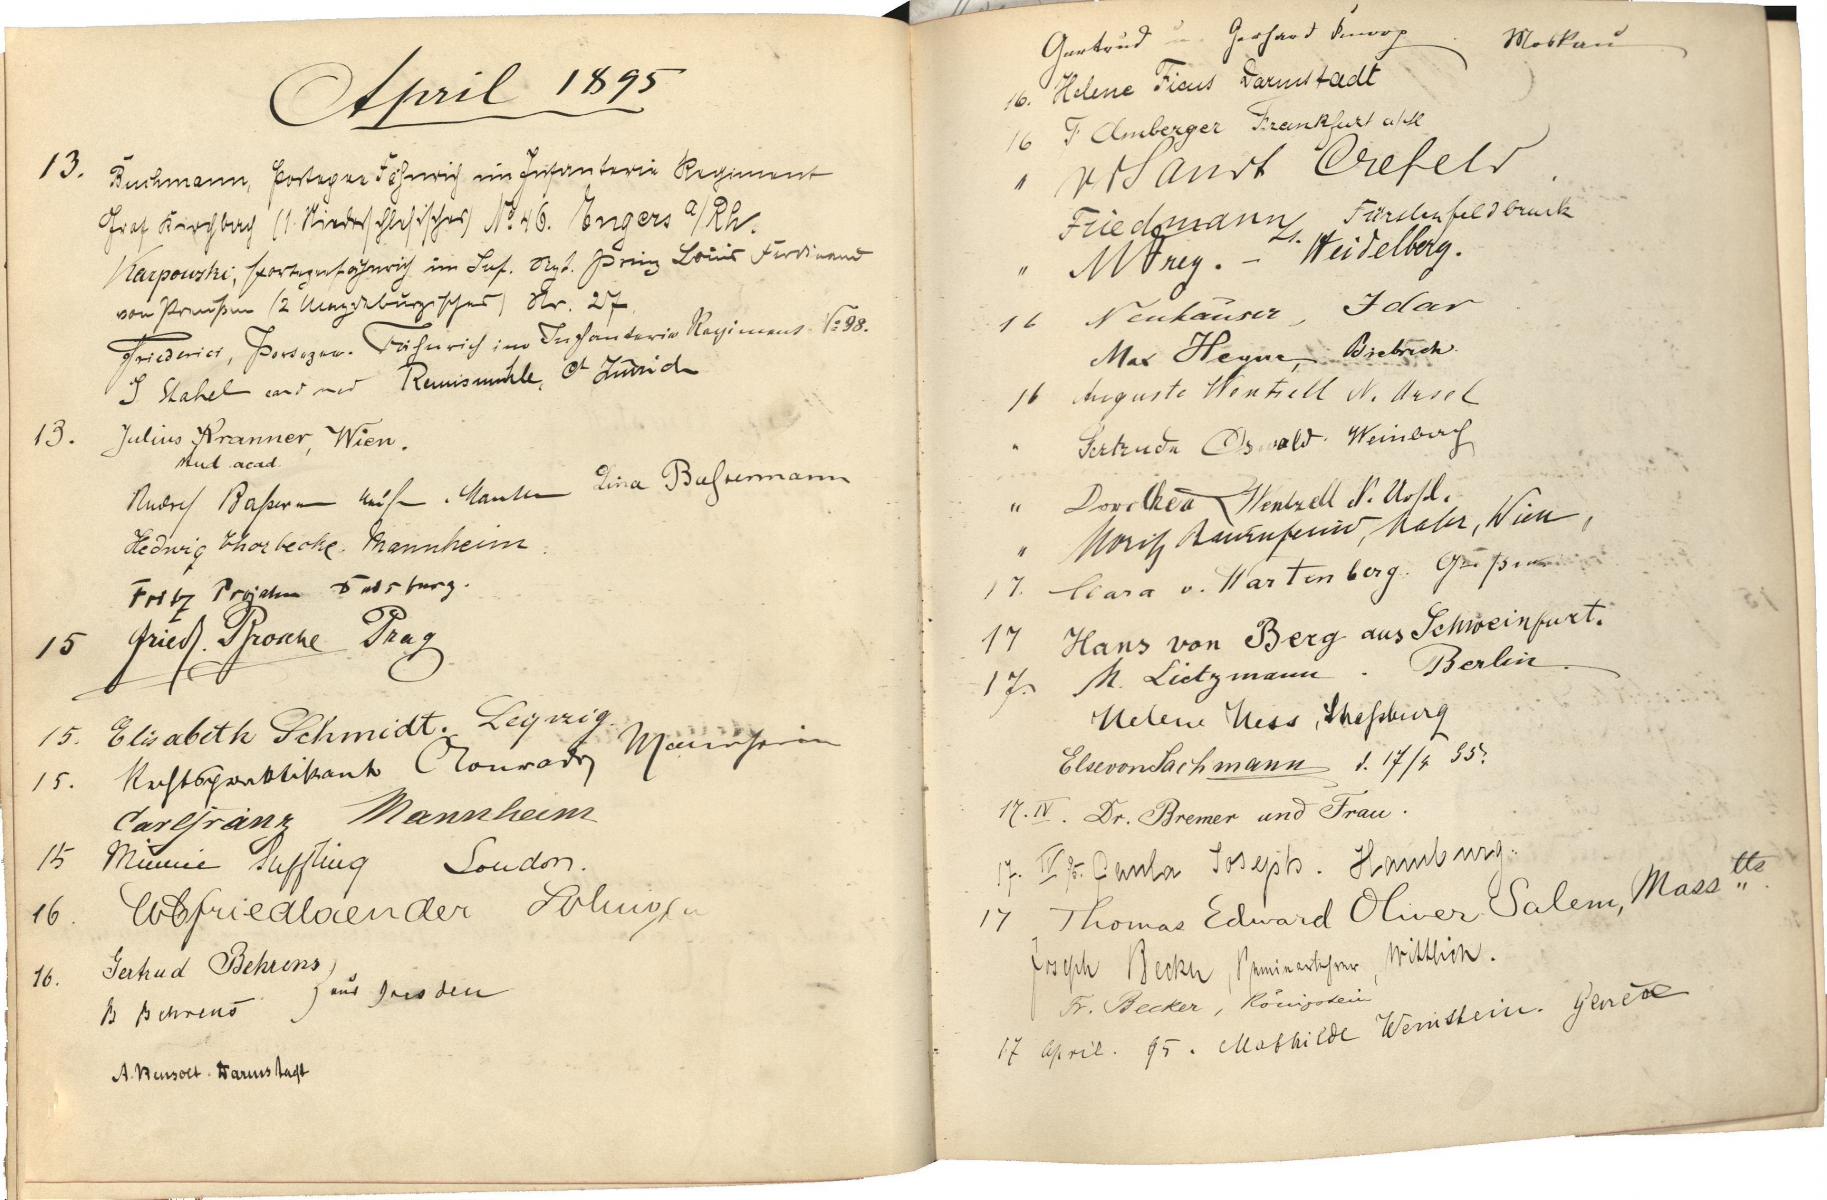 April 1895
13. Buchmann, Portepee Fähnrich im Infanterie Regiment
Graf Kirchbach (1. Niederschlesisches) No 46. Engers a/Rh.
Karpowski, Portepeefähnrich im Inf. Rgt. Prinz Louis Ferdinand
von Preußen (2 Magdeburgisches) Nr. 27.
Friederici, Portepee-Fähnrich im Infanterie Regiment No 98.
J Stahel Remismühle, Ct Zürich
13. Julius Kranner, Wien.
stud. acad.
Rudolf Lina Bassermann
Hedwig Thorbecke. Mannheim.
Fritz
15 Friedr. Prosche Prag
15. Elisabeth Schmidt. Leipzig.
15. Rechtspraktikant Conrady Mannheim
Carl Franz Mannheim
15 Minnie Suffling London.
16. Friedlaender Solingen
16. Gertrud Behrens
B Behrens aus Dresden
A. Darmstadt
Gertrud u Gerhard Moskau
16. Helene Ficus Darmstadt
16 F Amberger Frankfurt a/M
" Crefeld
Friedmann, Fürstenfeldbruck
" Heidelberg.
16 Neuhäuser, Idar
Max Heyne, Biebrich.
16 Auguste Wentzell N. Ursel
" Gertrude Oswald. Weinberg
" Dorothea Wentzell N. Ursel.
" Moritz Maler, Wien,
17. Clara v. Wartenberg.
17 Hans von Berg aus Schweinfurt.
17. M. Lietzmann. Berlin.
Helene Hess, Straßburg
Else von Lachmann d. 17/4 95.
17. IV. Dr. Bremer und Frau.
17. IV 95. Paula Joseph. Hamburg.
17 Thomas Edward Oliver Salem, Mass tts.
Joseph Becker, Seminarlehrer, Wittlich.
Fr. Becker, Königstein
17 April. 95. Mathilde Weinstein. Genève